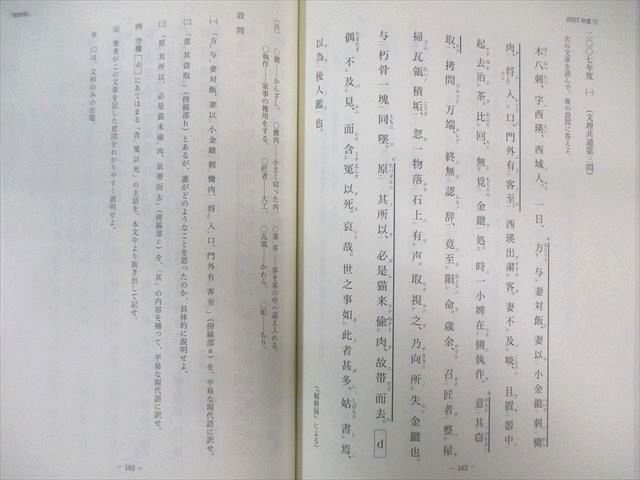 2007年度（一）
二〇〇七年度 （一）　（文理共通第三問）
次の文章を読んで、後の設問に答えよ。
木八剌、字西瑛、西域人。一日、方与妻対飯、妻以小金鎞刺臠
肉、将入口、門外有客至。西瑛出粛客。妻不及啖、且置器中、
起去治茶。比回、無覓金鎞処。時一小婢在側執作。意其窃
取、拷問万端、終無認辞、竟至隕命。歳余、召匠者整屋、
掃瓦瓴積垢、忽一物落石上有声。取視之、乃向所失金鎞也。
与朽骨一塊同墜。原其所以、必是猫来偸肉、故帯而去。 d
偶不及見、而含冤以死。哀哉。世之事如此者甚多。姑書焉、
以為後人鑑也。
（『輟耕録』による）
- 162 -
〔注〕 ○鎞——かんざし。 ○臠肉——小さく切った肉。 ○粛客——客を家の中へ迎え入れる。
○執作——家事の雑用をする。 ○匠者——大工。 ○瓦瓴——かわら。 ○垢——ちり。
設問
(一) 「方与妻対飯、妻以小金鎞刺臠肉、将入口、門外有客至」（傍線部a）を、平易な現代語に訳せ。
(二) 「意其窃取」（傍線部b）とあるが、誰がどのようなことを思ったのか、具体的に説明せよ。
(三) 「原其所以、必是猫来偸肉、故帯而去」（傍線部c）を、「其」の内容を補って、平易な現代語に訳せ。
(四) 空欄 d にあてはまる「含冤以死」の主語を、本文中より抜き出して記せ。
(五) 筆者がこの文章を記した意図をわかりやすく説明せよ。
※ (二)は、文科のみの出題。
- 163 -